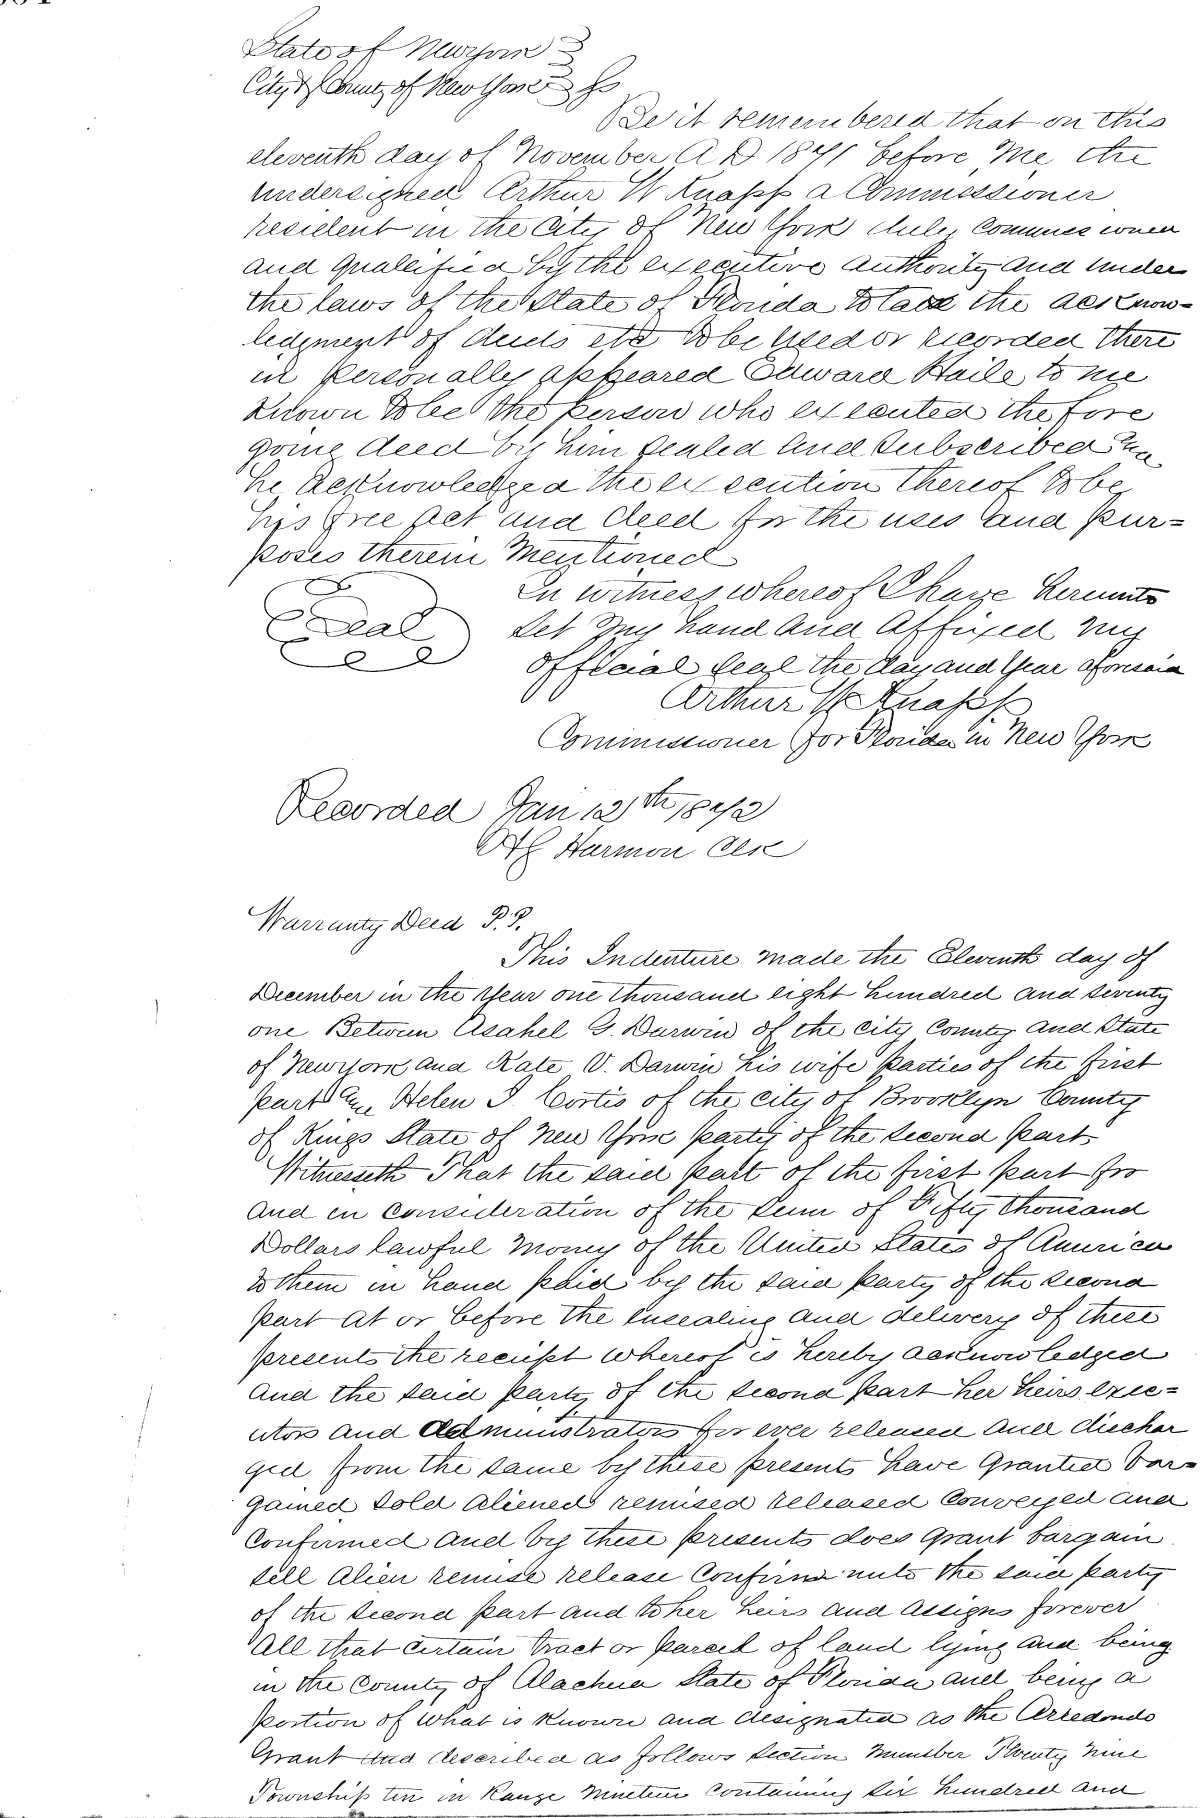 State of New York
City & County of New York Ss
Be it remembered that on this
eleventh day of November A D 1871 before me the
undersigned Arthur W Knapp a Commissioner
resident in the City of New York duly commissioned
and qualified by the executive authority and under
the laws of the State of Florida to take the acknow=
ledgment of deeds etc to be used or recorded there
in personally appeared Edward Haile to me
known to be the person who executed the fore
going deed by him sealed and subscribed and
he acknowledged the execution thereof to be
his free act and deed for the uses and pur=
poses therein mentioned
In witness whereof I have hereunto
Seal
set my hand and affixed my
official seal the day and year aforesaid
Arthur W Knapp
Commissioner for Florida in New York
Recorded Jan 12th 1872
Harmon Clk
Warranty Deed P.P.
This Indenture made the Eleventh day of
December in the year one thousand eight hundred and seventy
one Between Asahel G. Darwin of the city County and State
of New York and Kate V. Darwin his wife parties of the first
part and Helen I. Cortis of the city of Brooklyn County
of Kings State of New York party of the second part
Witnesseth That the said part of the first part fro
and in consideration of the sum of Fifty thousand
Dollars lawful money of the United States of America
to them in hand paid by the said party of the second
part at or before the ensealing and delivery of these
presents the receipt whereof is hereby acknowledged
and the said party of the second part her heirs exec=
utors and administrators for ever released and dischar
ged from the same by these presents have granted bar=
gained sold aliened remised released conveyed and
confirmed and by these presents does grant bargain
sell alien remise release confirm unto the said party
of the second part and to her heirs and assigns forever
All that certain tract or parcel of land lying and being
in the County of Alachua State of Florida and being a
portion of what is known and designated as the Arredondo
Grant and described as follows Section number Twenty nine
Township ten in Range Nineteen containing six hundred and